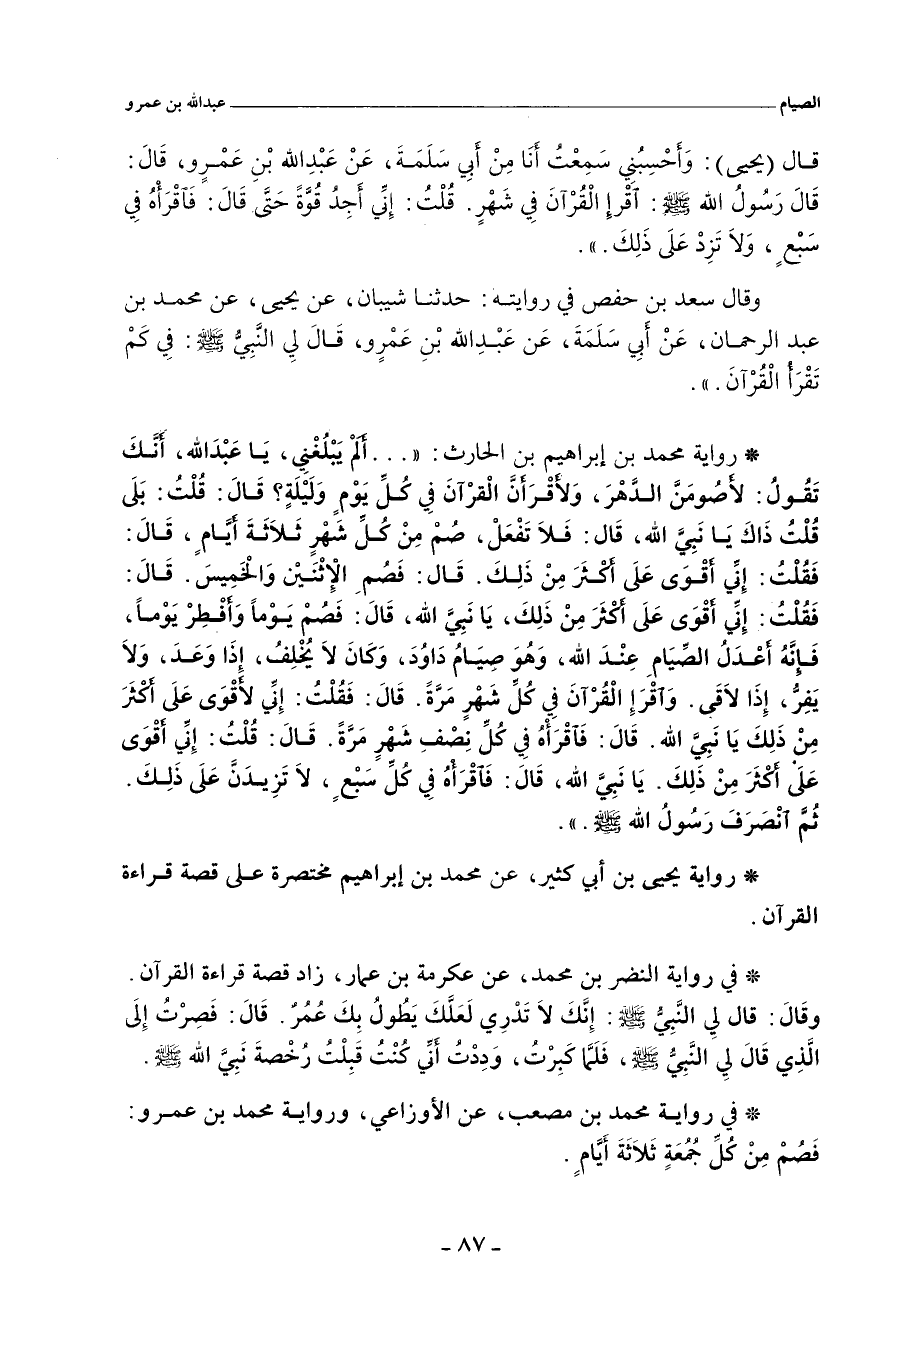 الصيام ــــــــــــــــــــــــــــــــ عبدالله بن عمرو
قال (يحيى): وَأَحْسِبُنِي سَمِعْتُ أَنَا مِنْ أَبِي سَلَمَةَ، عَنْ عَبْدِالله بْنِ عَمْرٍو، قَالَ:
قَالَ رَسُولُ الله ﷺ: آقْرَإِ الْقُرْآنَ فِي شَهْرٍ. قُلْتُ: إِنِّي أَجِدُ قُوَّةً حَتَّى قَالَ: فَآقْرَأْهُ فِي
سَبْعٍ، وَلاَ تَزِدْ عَلَى ذَلِكَ.».
وقال سعد بن حفص في روايته: حدثنا شيبان، عن يحيى، عن محمد بن
عبد الرحمان، عَنْ أَبِي سَلَمَةَ، عَن عَبْدِالله بْنِ عَمْرٍو، قَالَ لِي النَّبِيُّ ﷺ: فِي كَمْ
تَقْرَأُ الْقُرْآنَ.».
* رواية محمد بن إبراهيم بن الحارث: «... أَلَمْ يَبْلُغْنِي، يَا عَبْدَالله، أَنَّكَ
تَقُولُ: لأَصُومَنَّ الدَّهْرَ، وَلأَقْرَأَنَّ الْقرْآنَ فِي كُلِّ يَوْمٍ وَلَيْلَةٍ؟ قَالَ: قُلْتُ: بَلَى
قُلْتُ ذَاكَ يَا نَبِيَّ الله، قال: فَلاَ تَفْعَلْ، صُمْ مِنْ كُلِّ شَهْرٍ ثَلاَثَةَ أَيَّامٍ، قَالَ:
فَقُلْتُ: إِنِّي أَقْوَى عَلَى أَكْثَرَ مِنْ ذَلِكَ. قَال: فَصُمِ الإِثْنَيْنِ وَالْخَمِيسَ. قَالَ:
فَقُلْتُ: إِنِّي أَقْوَى عَلَى أَكْثَرَ مِنْ ذَلِكَ، يَا نَبِيَّ الله، قَالَ: فَصُمْ يَوْماً وَأَفْطِرْ يَوْماً،
فَإِنَّهُ أَعْدَلُ الصِّيَامِ عِنْدَ الله، وَهُوَ صِيَامُ دَاوُدَ، وَكَانَ لاَ يُخْلِفُ، إِذَا وَعَدَ، وَلاَ
يَفِرُّ، إِذَا لاَقَى. وَآقْرَإِ الْقُرْآنَ فِي كُلِّ شَهْرٍ مَرَّةً. قَالَ: فَقُلْتُ: إِنِّي لأَقْوَى عَلَى أَكْثَرَ
مِنْ ذَلِكَ يَا نَبِيَّ الله. قَالَ: فَآقْرَأْهُ فِي كُلِّ نِصْفِ شَهْرٍ مَرَّةً. قَالَ: قُلْتُ: إِنِّي أَقْوَى
عَلَى أَكْثَرَ مِنْ ذَلِكَ. يَا نَبِيَّ الله، قَالَ: فَآقْرَأْهُ فِي كُلِّ سَبْعٍ، لاَ تَزِيدَنَّ عَلَى ذَلِكَ.
ثُمَّ آنْصَرَفَ رَسُولُ الله ﷺ.».
* رواية يحيى بن أبي كثير، عن محمد بن إبراهيم مختصرة على قصة قراءة
القرآن.
* في رواية النضر بن محمد، عن عكرمة بن عمار، زاد قصة قراءة القرآن.
وقَالَ: قال لِي النَّبِيُّ ﷺ: إِنَّكَ لاَ تَدْرِي لَعَلَّكَ يَطُولُ بِكَ عُمُرٌ. قَالَ: فَصِرْتُ إِلَى
الَّذِي قَالَ لِي النَّبِيُّ ﷺ، فَلَمَّا كَبِرْتُ، وَدِدْتُ أَنِّي كُنْتُ قَبِلْتُ رُخْصةَ نَبِيَّ الله ﷺ.
* في رواية محمد بن مصعب، عن الأوزاعي، ورواية محمد بن عمرو:
فَصُمْ مِنْ كُلِّ جُمُعَةٍ ثَلاَثَةَ أَيَّامٍ.
- ٨٧ -